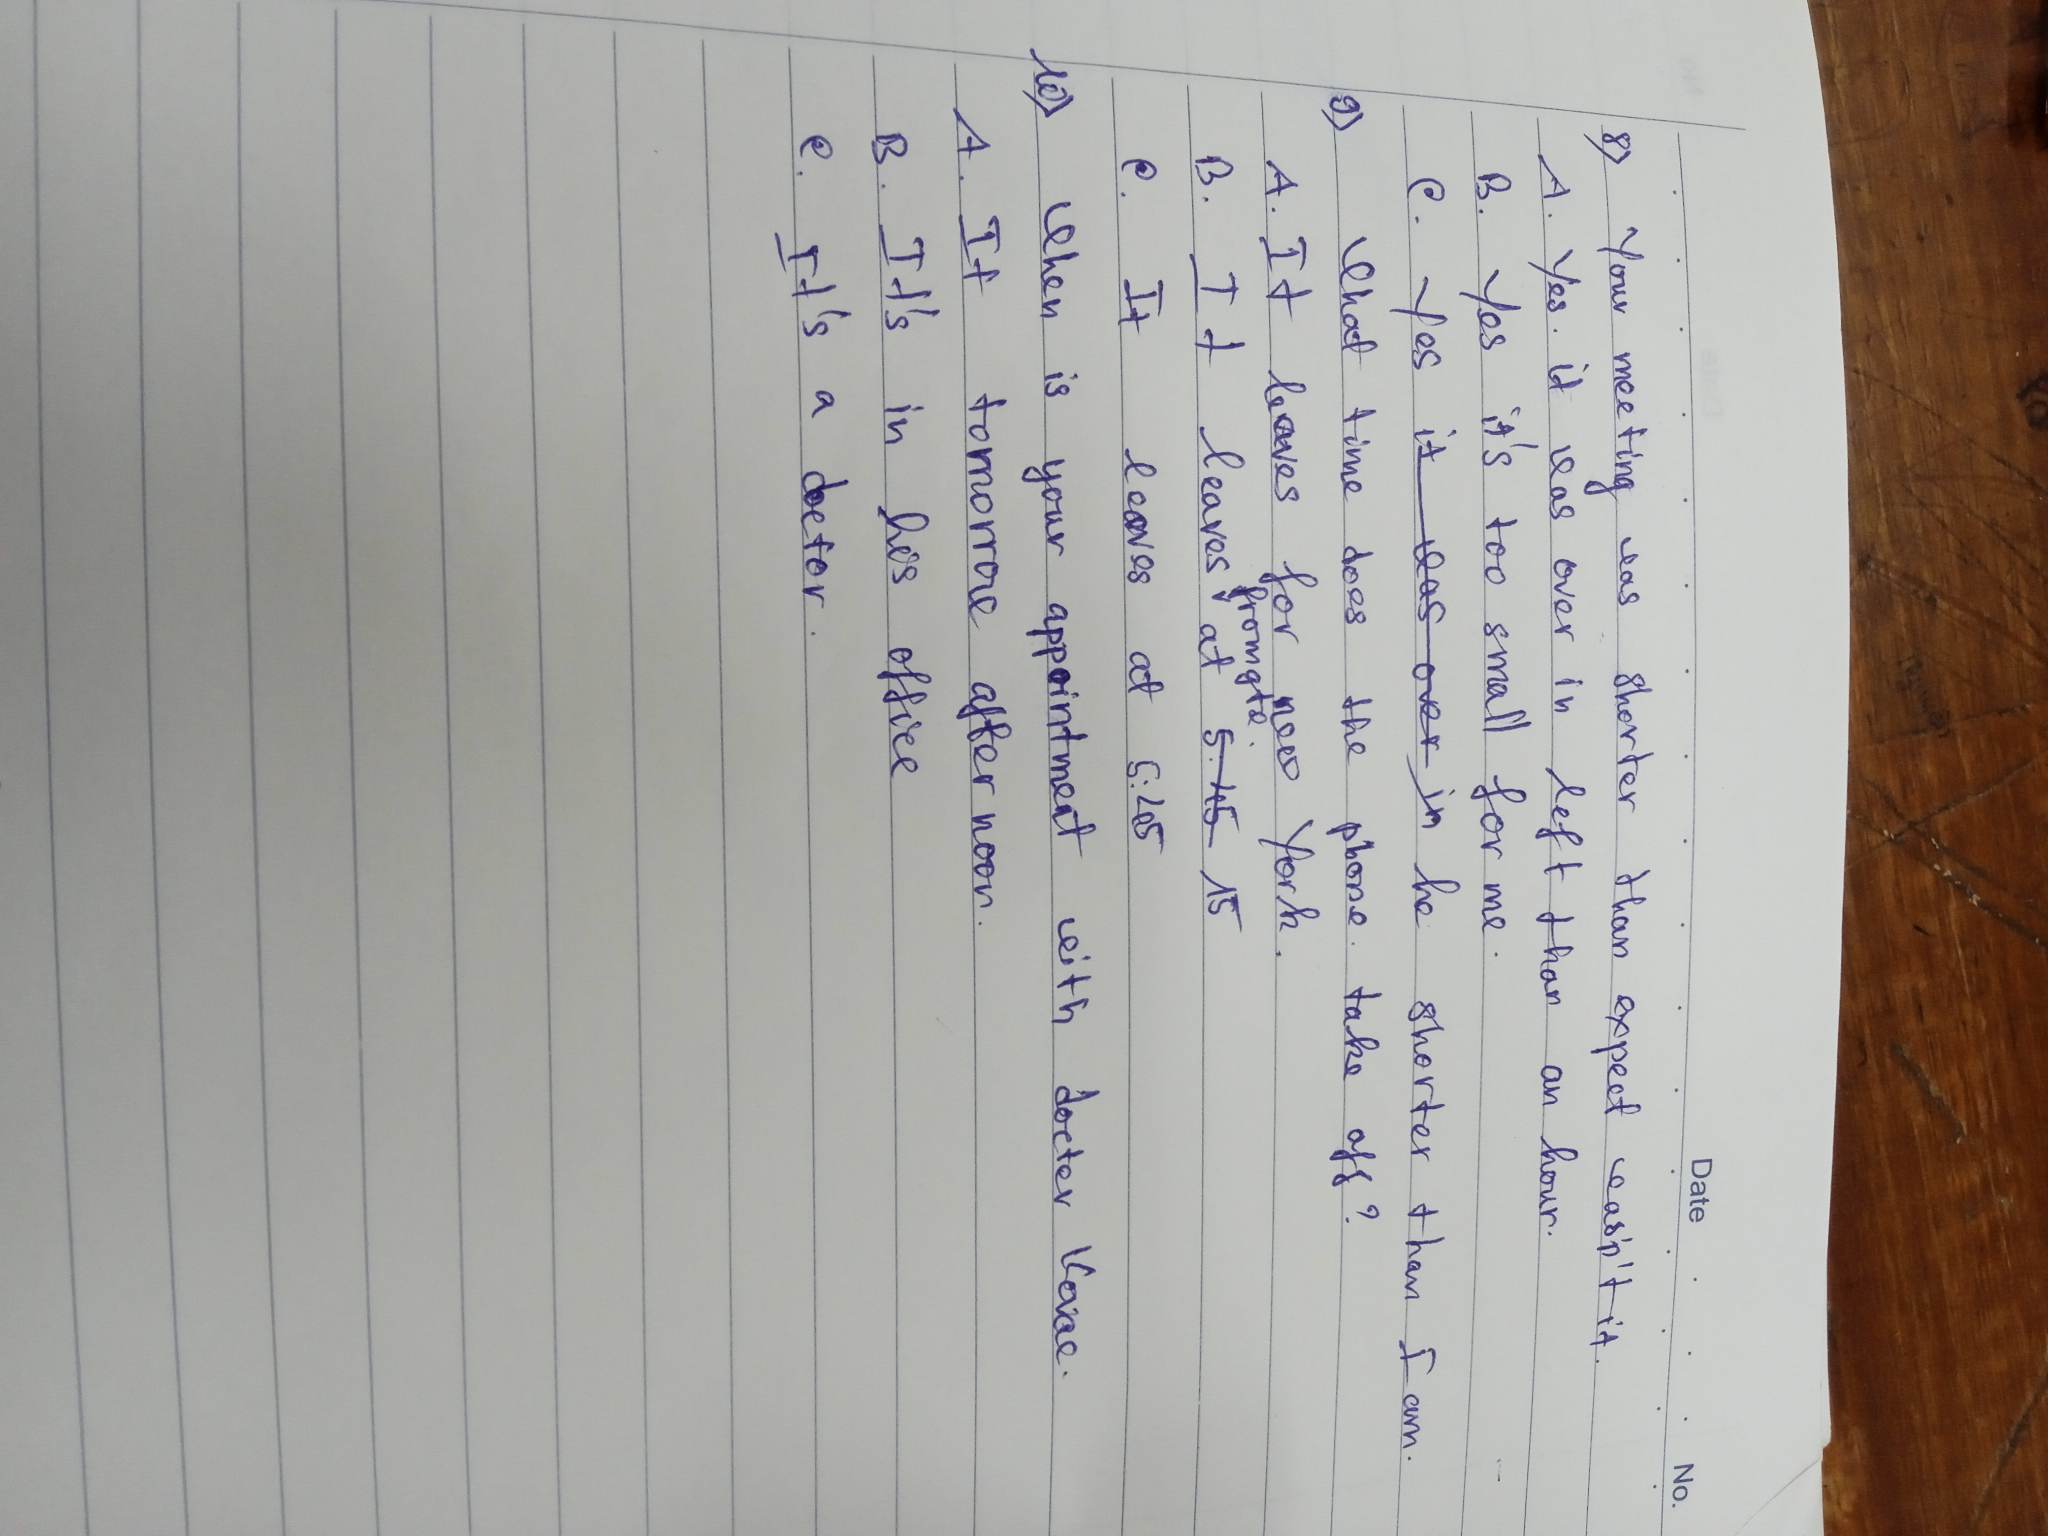 Date No.
8) Your meeting was shorter than expect wasn't it.
A. Yes. it was over in left than an hour.
B. Yes it's too small for me.
C. Yes it was over in he shorter than I am.
9) What time does the phone. take off?
A. It leaves for new York.
fromgte.
B. It leaves at 5:45 15
C. It leaves at 5:45
10) When is your appointment with docter
A. It tomorrow afternoon.
B. It's in his office
C. It's a doctor.